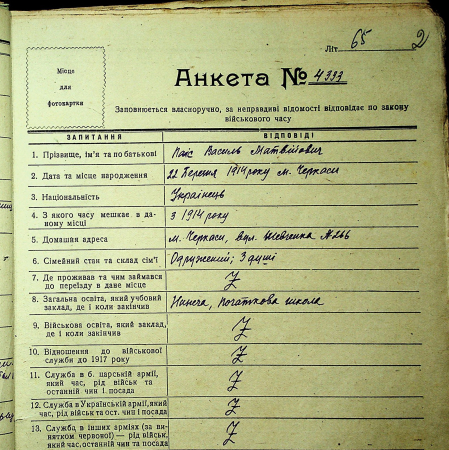 Літ. 65 2
Місце
для
фотокартки
Анкета № 4337
Заповнюється власноручно, за неправдиві відомості відповідає по закону
військового часу
ЗАПИТАННЯ ВІДПОВІДІ
1. Прізвище, ім'я та по батькові Василь Матвійович
2. Дата та місце народження 22 Березня 1914 року м. Черкаси
3. Національність Українець
4. З якого часу мешкає в да- з 1914 року
ному місці
5. Домашня адреса м. Черкаси, вул. Шевченка № 266
6. Сімейний стан та склад сім'ї Одружений; 3 душі
7. Де проживав та чим займався
до переїзду в дане місце
8. Загальна освіта, який учбовий Нижча, Початкова школа
заклад, де і коли закінчив
9. Військова освіта, який заклад,
де і коли закінчив
10. Відношення до військової
служби до 1917 року
11. Служба в б. царській армії,
який час, рід військ та
останній чин і посада
12. Служба в Українській армії, який
час, рід військ та ост. чин і посада
13. Служба в інших арміях (за ви-
нятком червоної) — рід військ,
який час, останній чин та посада